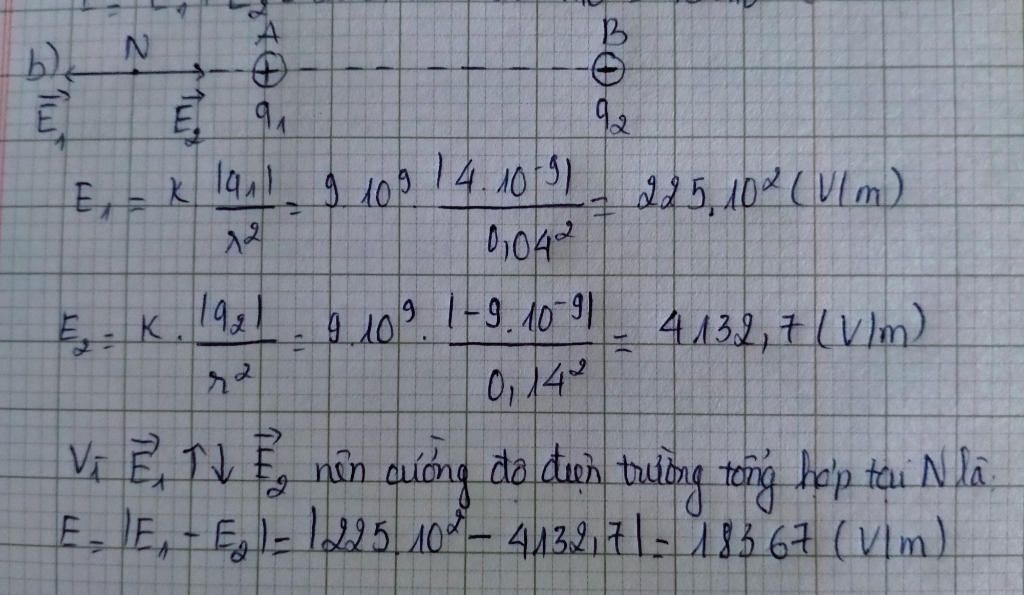 N A B
b)
E⃗₁ E⃗₂ q₁ q₂
E₁ = K |q₁|/r² = 9.10⁹. |4.10⁻⁹|/0,04² = 225.10² (V/m)
E₂ = K. |q₂|/r² = 9.10⁹. |-9.10⁻⁹|/0,14² = 4132,7 (V/m)
Vì E⃗₁ ↑↓ E⃗₂ nên cường độ điện trường tổng hợp tại N là:
E = |E₁ - E₂| = |225.10² - 4132,7| = 18367 (V/m)